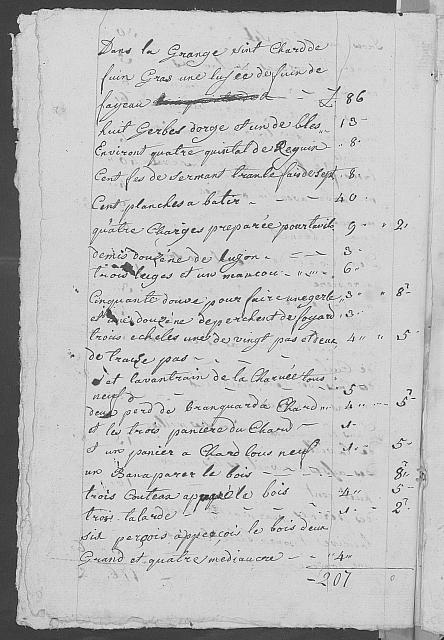 Dans la Grange sint Chard de
fuin Gras une lusée de fuin de
fayeau - - L 86
huit Gerbes d'orge et un de bles " 13 -
Environt quatre quintal de Reguin " 8 -
Cent fes de serment trante fais de sept 8 -
Cent planches a batir - - - 40
quatre Charges preparée pour 9 - " 2 "
demis douzene de - - - 3 -
trois leiges et un mancou - 6 -
Cinquante douve pour faire une gerle " 3 " " 8 "
et une douzene de perches de foyard " 3 -
trois echeles une de vingt pas et deux 4 " " 5
de traize pas - - -
et lavantrain de la Charuee tous
neuf - - 5
deux perd de Branquard a Chard " 4 " - 5
et les trois paniere du Chard - 1 -
et un panier a Chard tous neuf 1 - 5 -
un Banaparer le bois - - - 8 "
trois Couteau le bois " 4 " 5 -
trois talarde - - - 1 - - 2
sis perçois appersois le bois deux
Grand et quatre mediaucre - " 4 "
- 207 0